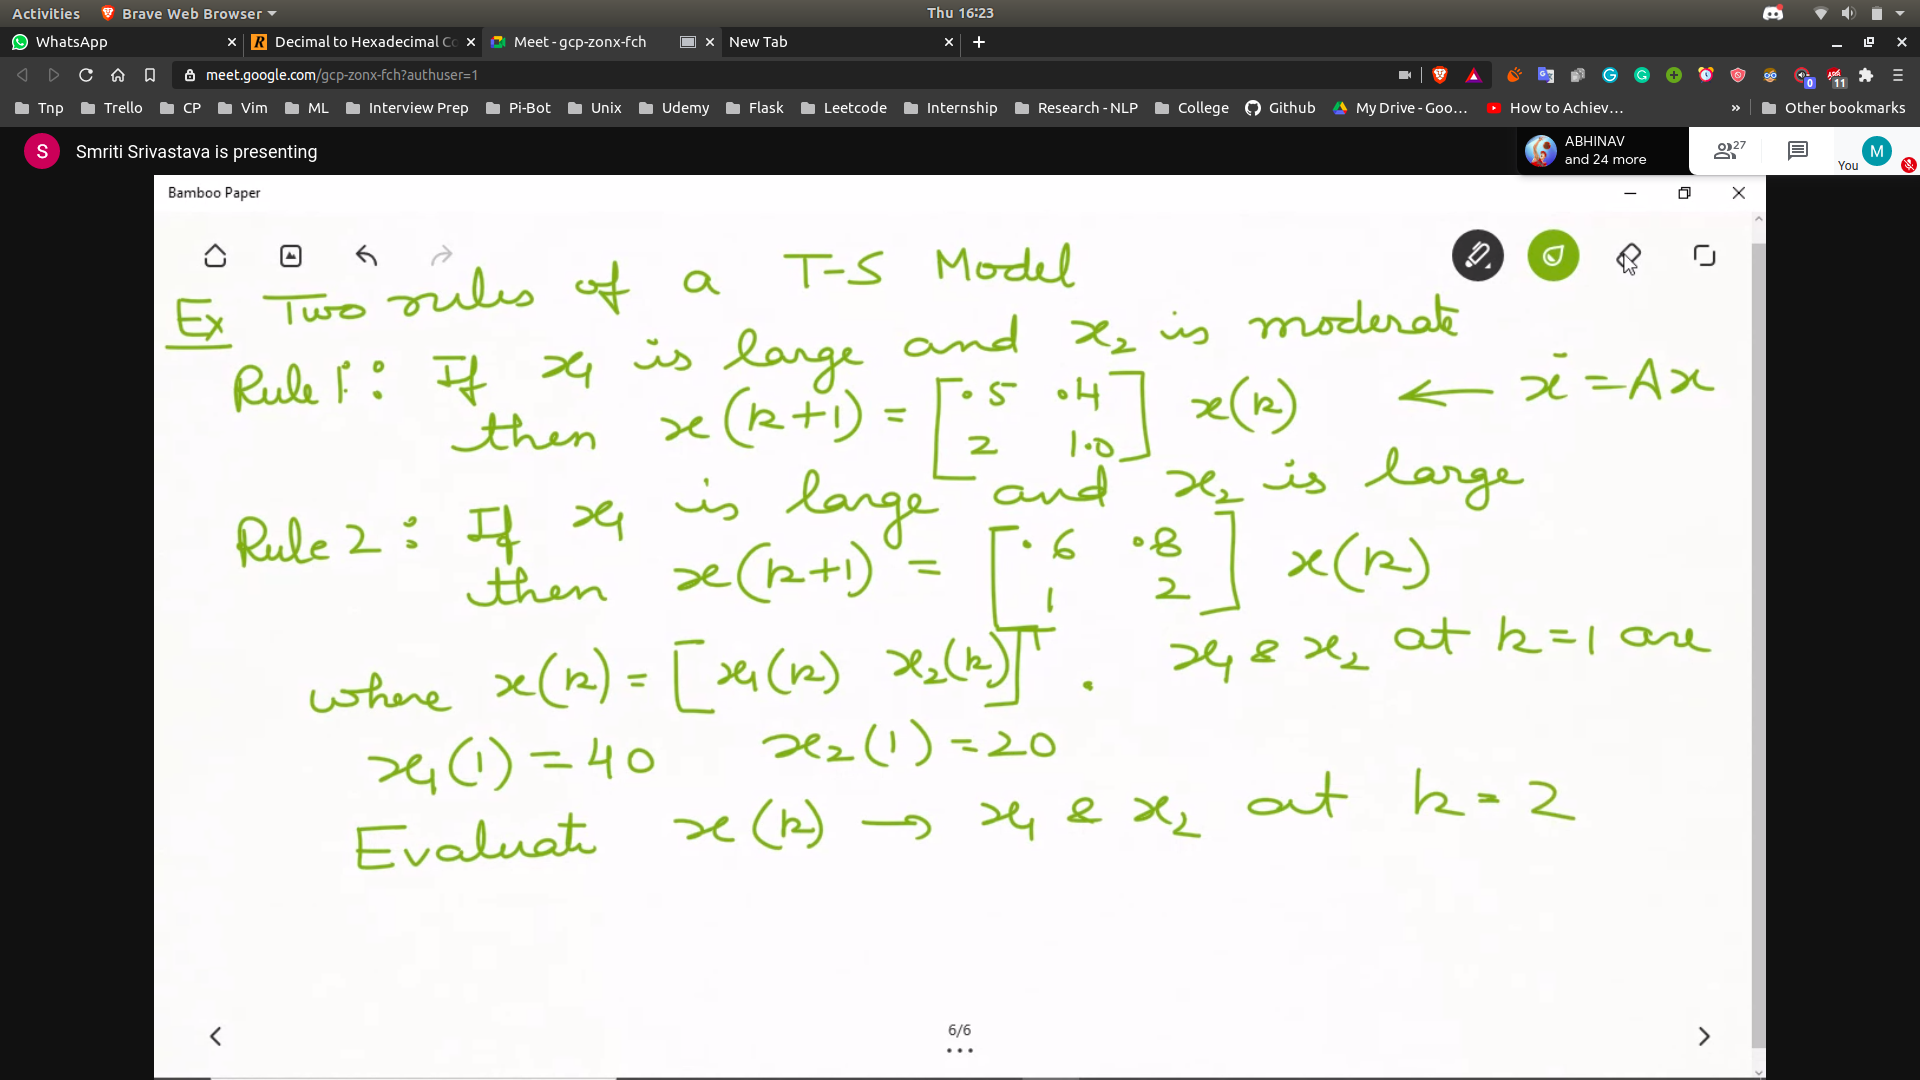 Activities Brave Web Browser Thu 16:23
WhatsApp Decimal to Hexadecimal Co Meet - gcp-zonx-fch New Tab
meet.google.com/gcp-zonx-fch?authuser=1 0 11
Tnp Trello CP Vim ML Interview Prep Pi-Bot Unix Udemy Flask Leetcode Internship Research - NLP College Github My Drive - Goo... How to Achiev... » Other bookmarks
S Smriti Srivastava is presenting ABHINAV and 24 more 27 You M
Bamboo Paper
Ex Two rules of a T-S Model
Rule 1: If x₁ is large and x₂ is moderate
then x(k+1) = [.5 .4; 2 1.0] x(k) ← ẋ = Ax
Rule 2: If x₁ is large and x₂ is large
then x(k+1) = [.6 .8; 1 2] x(k)
where x(k) = [x₁(k) x₂(k)]ᵀ. x₁ & x₂ at k=1 are
x₁(1) = 40 x₂(1) = 20
Evaluate x(k) → x₁ & x₂ at k = 2
6/6